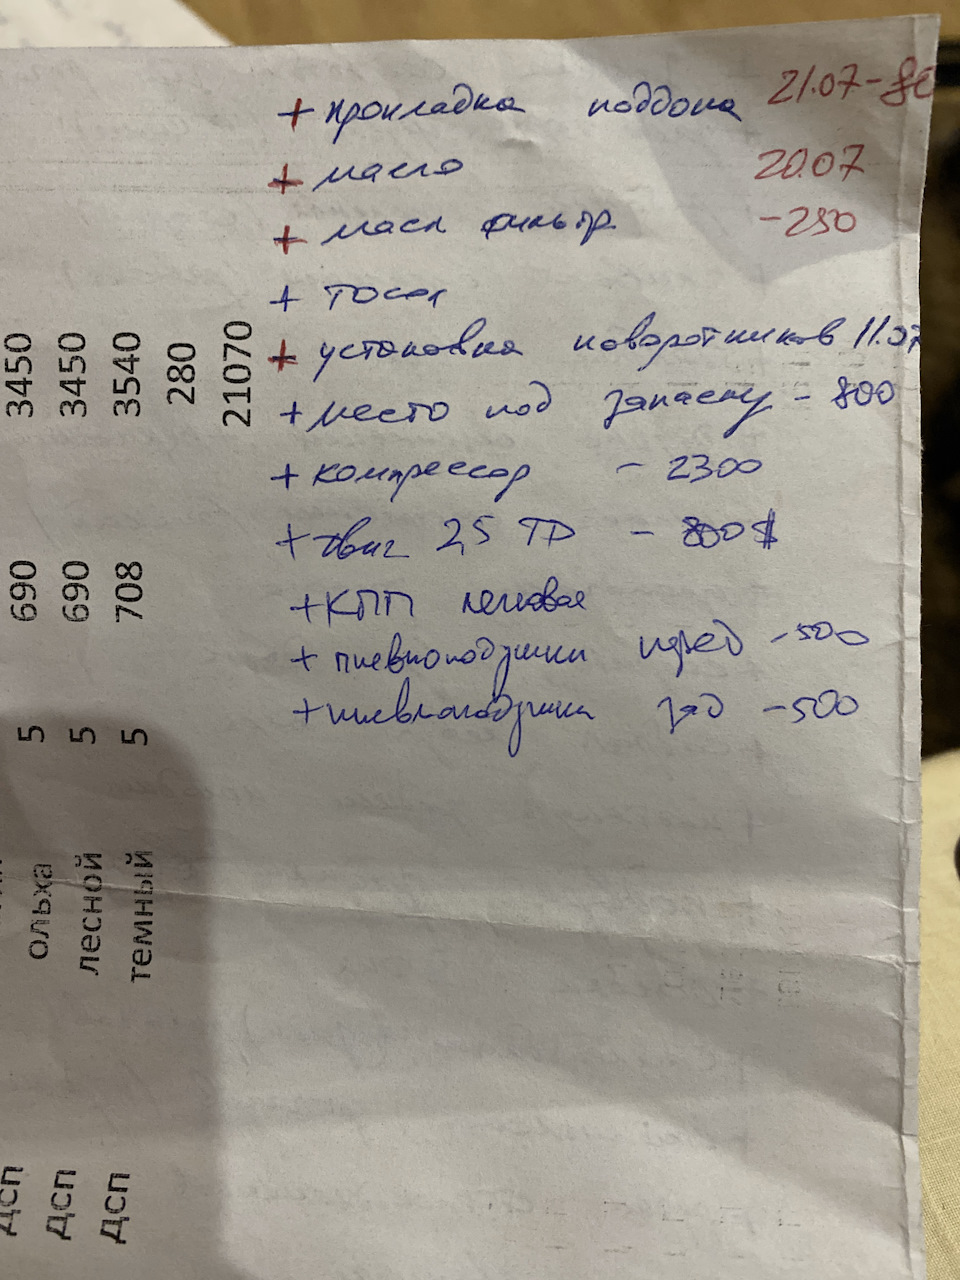 + прокладка поддона 21.07-
+ масло 20.07
+ масл фильтр. -250
+ тосол
+ установка поворотников 11.07
+ место под запаску - 800
+ компрессор - 2300
+ двиг 2,5 TD - 800$
+ КПП легковая
+ пневмоподушки перед -500
+ пневмоподушки зад -500
ДСП
ДСП ольха 5 690 3450
ДСП лесной 5 690 3450
ДСП темный 5 708 3540
280
21070